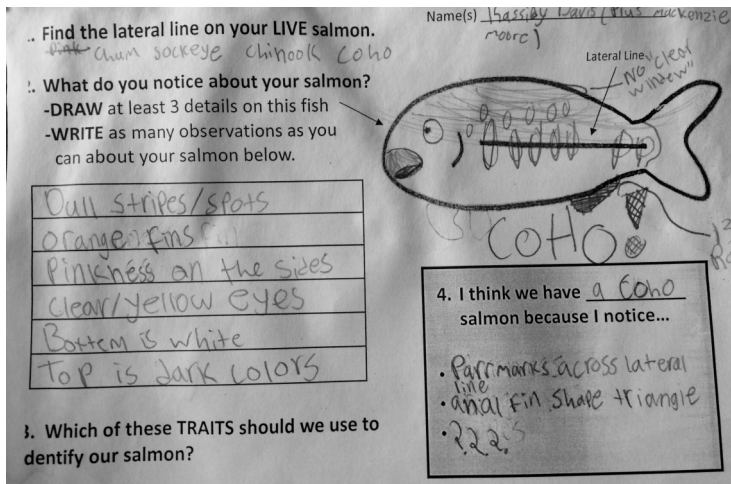 Name(s) Kassidy Davis (Plus mackenzie
moore)
.. Find the lateral line on your LIVE salmon.
Pink Chum sockeye Chinook Coho
Lateral Line
No "clear
window"
. What do you notice about your salmon?
-DRAW at least 3 details on this fish
-WRITE as many observations as you
can about your salmon below.
Dull stripes/spots
orange fins
Pinkness on the sides
Clear/yellow eyes
Bottem is white
Top is dark colors
COHO
4. I think we have a Coho
salmon because I notice...
• Parrmarks across lateral
line
• anal fin shape triangle
• ???
3. Which of these TRAITS should we use to
dentify our salmon?